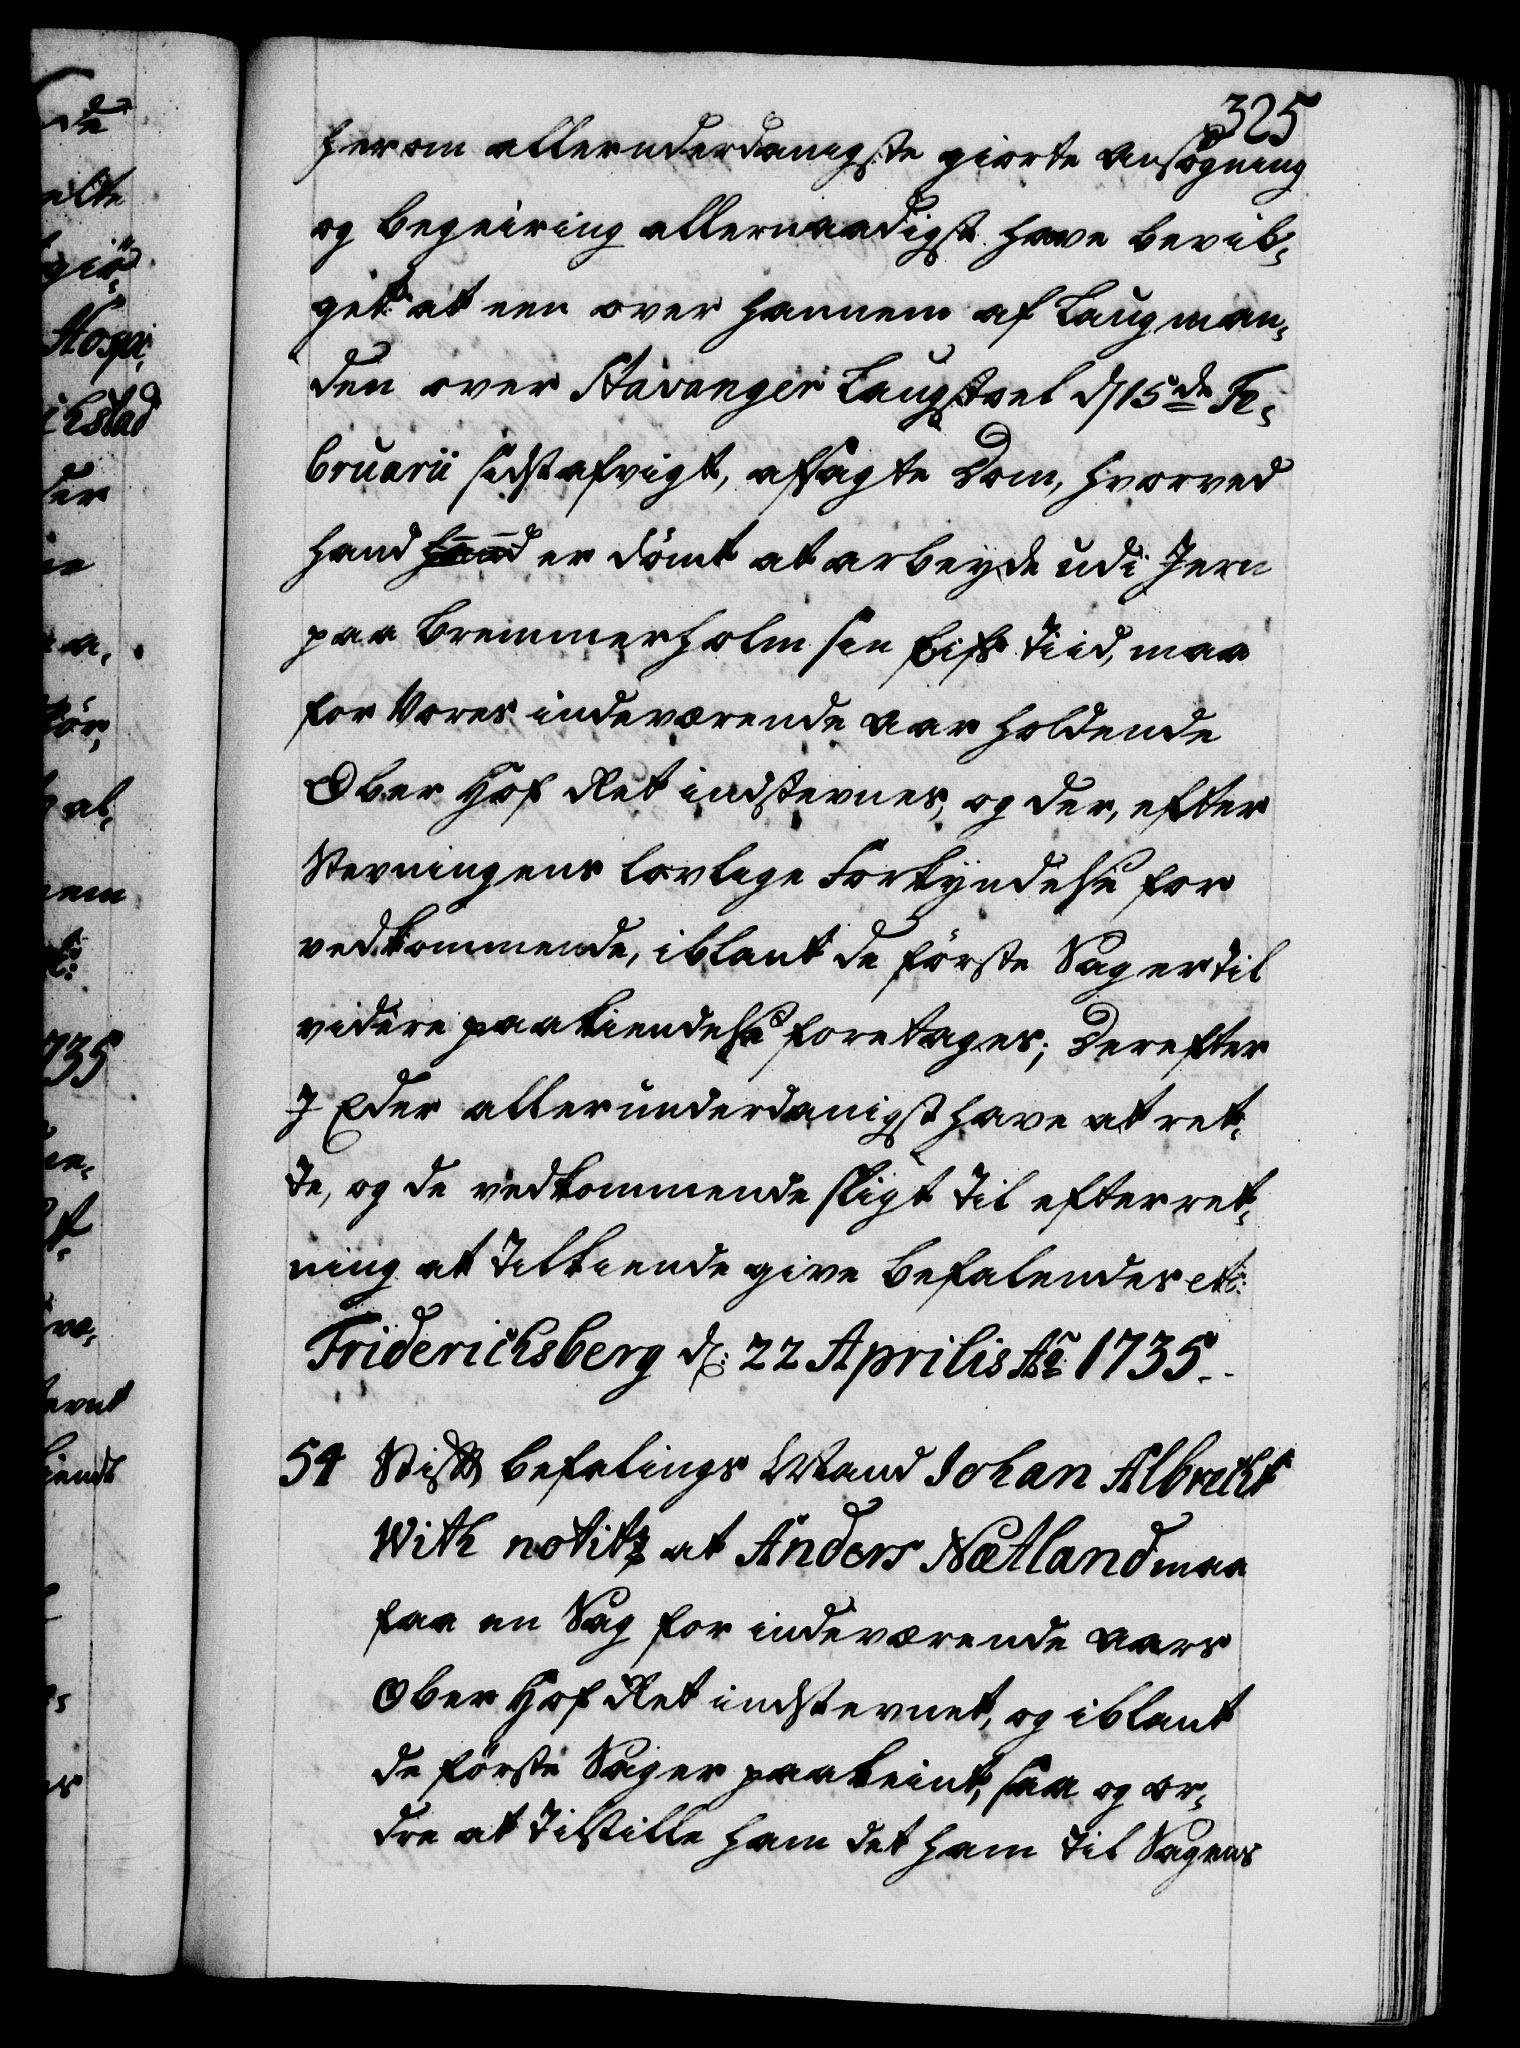 325
herom allerunderdanigste giorte Ansøgning
og begeiring allernaadigst have bevil-
get at een over hannem af Laugman-
den over Stavanger Laugstoel d. 15de Fe-
bruarii sidstafvigt, afsagte Dom, hvorved
hand hand er dömt at arbeyde udi Jern
paa Bremmerholm sin Lifs Tiid, maa
for Vores indeværende Aar holdende
Ober Hof Ret indstevnes, og der, efter
Stevningens lovlige Forkyndelse for
vedkommende, iblant de förste Sager til
videre paakiendelse foretages; Derefter
I Eder allerunderdanigst have at ret-
te, og de vedkommende sligt til efterret-
ning at tilkiende give Befalendes etc:
Friderichsberg d: 22 Aprilis Ao 1735.
54 Stift Befalings Mand Johan Albrecht
With notitz at Anders Nætland maa
faa en Sag for indeværende Aars
Ober Hof Ret indstevnet, og iblant
de förste Sager paakeint, saa og or-
dre at tilstille ham det ham til Sagens
de
elte
giö-
Hospi-
ichstad
der
ie
a,
för,
al-
nem
735
ernt
iendt